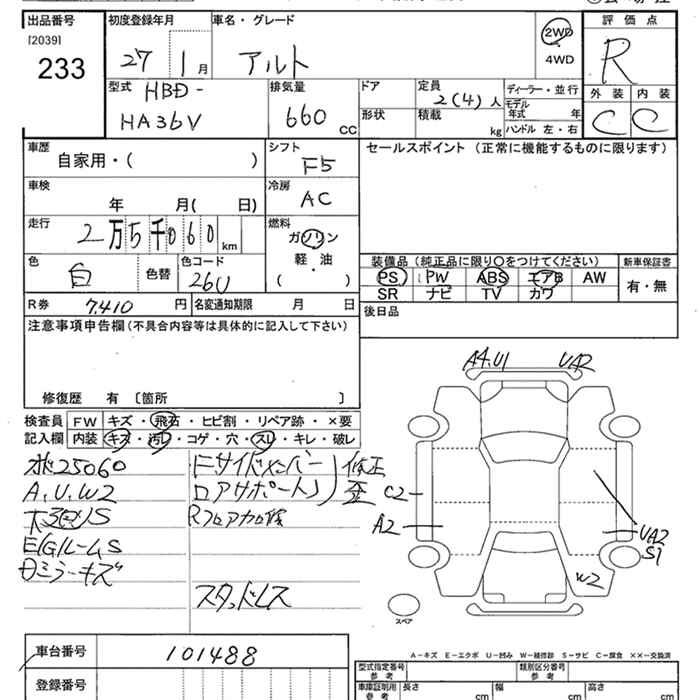 出品番号
[2039]
233
初度登録年月
27 1 月
車名・グレード
アルト
2WD
4WD
評価点
R
外装 内装
C C
型式
HBD-
HA36V
排気量
660 CC
ドア
形状
定員
2(4) 人
積載
kg
ディーラー・並行
モデル年式 年
ハンドル 左・右
車歴
自家用・( )
シフト
F5
セールスポイント (正常に機能するものに限ります)
車検
年 月( 日)
冷房
AC
走行
2万5千060 km
燃料
ガソリン
軽・油
( )
色
白
色替
色コード
26U
装備品 (純正品に限り○をつけてください)
PS PW ABS エアB AW
SR ナビ TV カワ
新車保証書
有・無
R券 7,410 円
名変通知期限 月 日
後日品
注意事項申告欄 (不具合内容等は具体的に記入して下さい)
修復歴 有 〔箇所 〕
検査員記入欄
FW キズ・飛石・ヒビ割・リペア跡・×要
内装 キズ・汚レ・コゲ・穴・スレ・キレ・破レ
25060
A,U,W2
S
E/GルームS
ミラーキズ
Fサイドメンバー
ロアサポート
修正
歪
Rフロア加修
スタッドレス
A4.U1
UA2
C2
A2
UA2
S1
W2
スペア
A-キズ E-エクボ U-凹み W-補修跡 S-サビ C-腐食 ××-交換済
車台番号
101488
登録番号
型式指定番号
参考
類別区分番号
参考
車庫証明用
参考
長さ cm
幅 cm
高さ cm